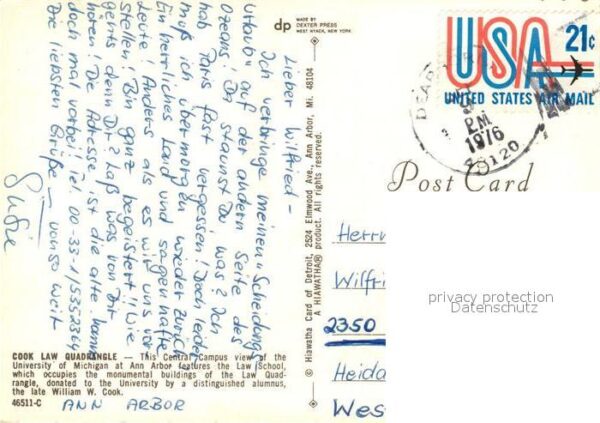 dp
MADE BY
DEXTER PRESS
WEST NYACK, NEW YORK
Lieber Wilfried –
Ich verbringe meinen „Scheidungs-
urlaub“ auf der andern Seite des
Ozeans! Da staunst Du, was? Ich
hab Paris fast vergessen! Doch leider
muß ich übermorgen wieder zurück.
Ein herrliches Land und sagenhafte
Leute! Anders als es wir uns vor-
stellen! Bin ganz begeistert!! Wie
gehts denn Dir? Laß was von Dir
hören! Die Adresse ist die alte. Komm
doch mal vorbei! Tel. 00-33-1/5352364
Die liebsten Grüße – von so weit
COOK LAW QUADRANGLE — This Central Campus view of the
University of Michigan at Ann Arbor features the Law School,
which occupies the monumental buildings of the Law Quad-
rangle, donated to the University by a distinguished alumnus,
the late William W. Cook.
46511-C
ANN ARBOR
© Hiawatha Card of Detroit, 2524 Elmwood Ave., Ann Arbor, Mi. 48104
A HIAWATHA® product. All rights reserved.
USA 21c
UNITED STATES AIR MAIL
PM
1976
48120
Post Card
Herrn
Wilfri
2350
Heida
Wes
privacy protection
Datenschutz